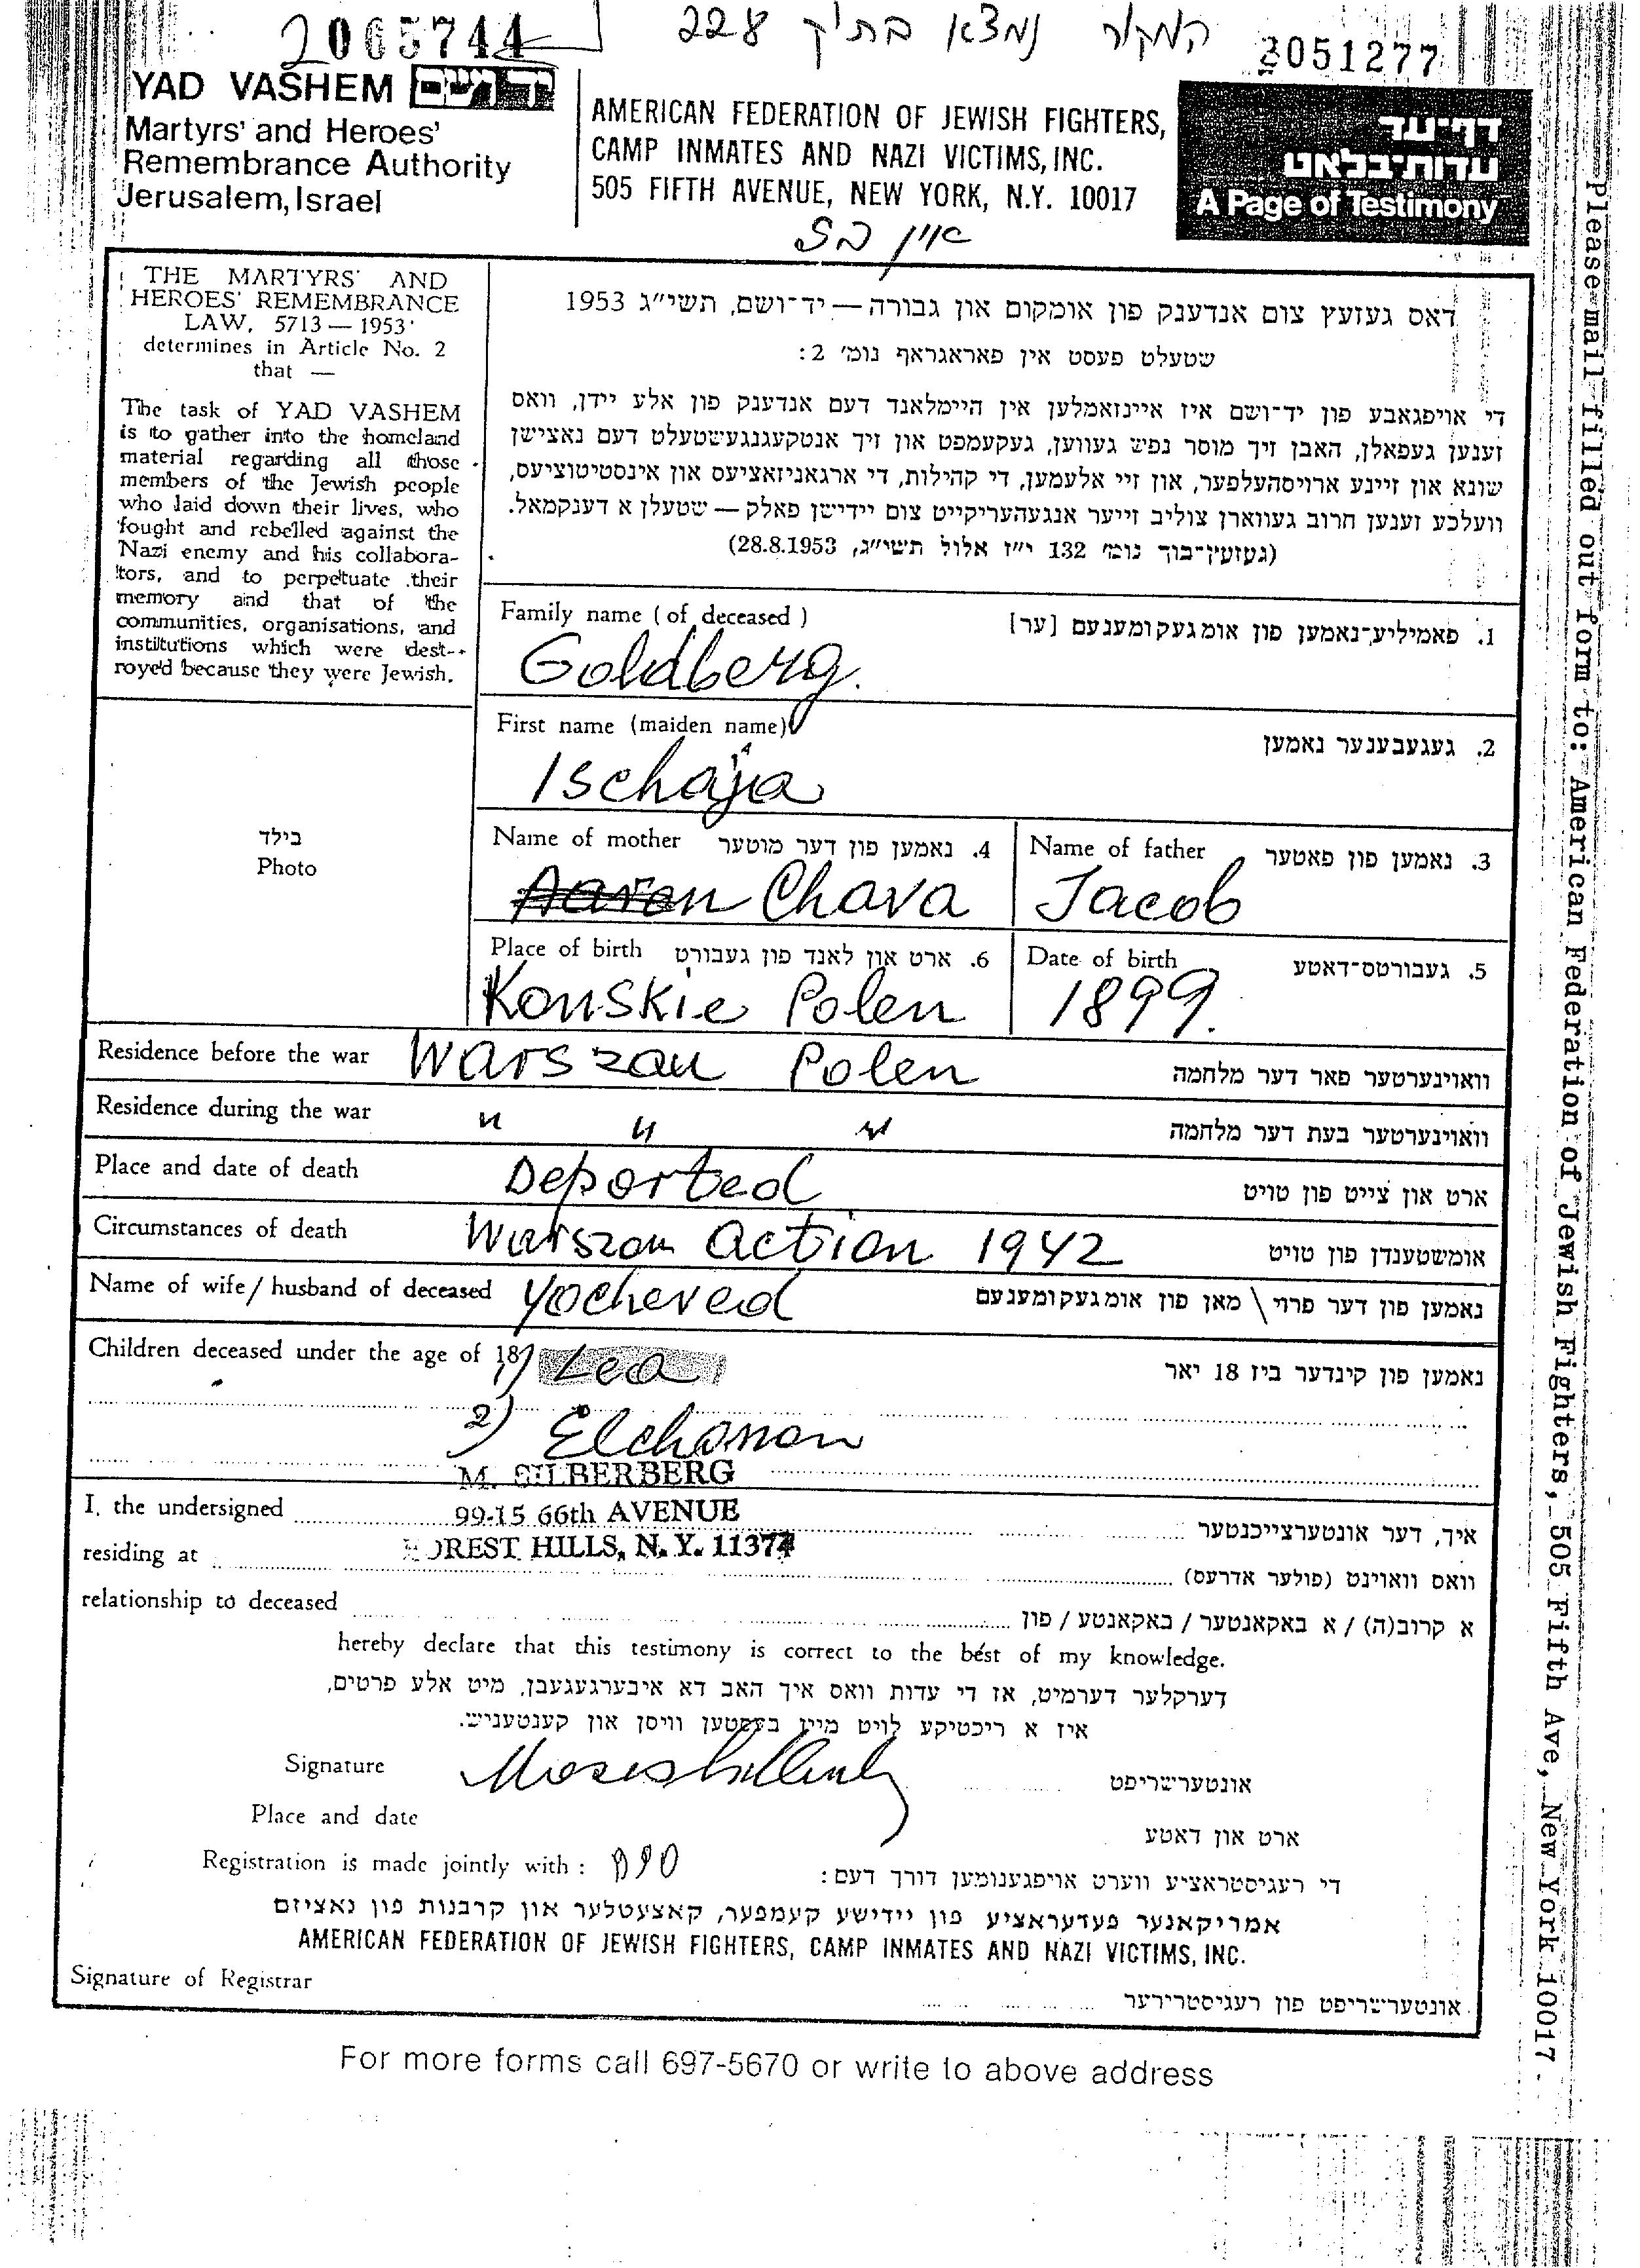 2065744
המקור נמצא בתיק 228
2051277
YAD VASHEM יד ושם
Martyrs' and Heroes'
Remembrance Authority
Jerusalem, Israel
AMERICAN FEDERATION OF JEWISH FIGHTERS,
CAMP INMATES AND NAZI VICTIMS, INC.
505 FIFTH AVENUE, NEW YORK, N.Y. 10017
דף־עד
עדות־בלאט
A Page of Testimony
אין
THE MARTYRS' AND
HEROES' REMEMBRANCE
LAW, 5713 — 1953
determines in Article No. 2
that —
The task of YAD VASHEM
is to gather into the homeland
material regarding all those
members of the Jewish people
who laid down their lives, who
fought and rebelled against the
Nazi enemy and his collabora-
tors, and to perpetuate their
memory and that of the
communities, organisations, and
institutions which were dest-
royed because they were Jewish.
דאס געזעץ צום אנדענק פון אומקום און גבורה — יד־ושם, תשי״ג 1953
שטעלט פעסט אין פאראגראף נומ׳ 2:
די אויפגאבע פון יד־ושם איז איינזאמלען אין היימלאנד דעם אנדענק פון אלע יידן, וואס
זענען געפאלן, האבן זיך מוסר נפש געווען, געקעמפט און זיך אנטקעגנגעשטעלט דעם נאצישן
שונא און זיינע ארויסהעלפער, און זיי אלעמען, די קהילות, די ארגאניזאציעס און אינסטיטוציעס,
וועלכע זענען חרוב געווארן צוליב זייער אנגעהעריקייט צום יידישן פאלק — שטעלן א דענקמאל.
(געזעץ־בוך נומ׳ 132 י״ז אלול תשי״ג, 28.8.1953)
Family name ( of deceased ) 1. פאמיליע־נאמען פון אומגעקומענעם [ער]
Goldberg.
First name (maiden name) 2. געגעבענער נאמען
Ischaja
בילד
Photo
Name of mother 4. נאמען פון דער מוטער
Name of father 3. נאמען פון פאטער
Aaron Chava
Jacob
Place of birth 6. ארט און לאנד פון געבורט
Date of birth 5. געבורטס־דאטע
Konskie Polen
1899.
Residence before the war Warszau Polen וואוינערטער פאר דער מלחמה
Residence during the war " " " וואוינערטער בעת דער מלחמה
Place and date of death Deported ארט און צייט פון טויט
Circumstances of death Warszau action 1942 אומשטענדן פון טויט
Name of wife / husband of deceased Yocheved נאמען פון דער פרוי \ מאן פון אומגעקומענעם
Children deceased under the age of 18 1) Lea נאמען פון קינדער ביז 18 יאר
2) Elchanan
M. SILBERBERG
I, the undersigned 99-15 66th AVENUE איך, דער אונטערצייכנטער
residing at FOREST HILLS, N. Y. 11374 וואס וואוינט (פולער אדרעס)
relationship to deceased א קרוב(ה) / א באקאנטער / באקאנטע / פון
hereby declare that this testimony is correct to the best of my knowledge.
דערקלער דערמיט, אז די עדות וואס איך האב דא איבערגעגעבן, מיט אלע פרטים,
איז א ריכטיקע לויט מיין בעסטען וויסן און קענטעניש.
Signature אונטערשריפט
Place and date ארט און דאטע
Registration is made jointly with : די רעגיסטראציע ווערט אויפגענומען דורך דעם:
אמריקאנער פעדעראציע פון יידישע קעמפער, קאצעטלער און קרבנות פון נאציזם
AMERICAN FEDERATION OF JEWISH FIGHTERS, CAMP INMATES AND NAZI VICTIMS, INC.
Signature of Registrar אונטערשריפט פון רעגיסטרירער
For more forms call 697-5670 or write to above address
Please mail filled out form to: American Federation of Jewish Fighters, 505 Fifth Ave, New York 10017